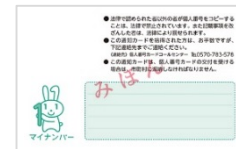 ● 法律で認められた者以外の者が個人番号をコピーする
ことは、法律で禁止されています。また記載事項を改
ざんした者は、法律により罰せられます。
● この通知カードを拾得された方は、お手数ですが、
下記連絡先までご連絡ください。
(連絡先)個人番号カードコールセンター ℡0570-783-578
● この通知カードは、個人番号カードの交付を受ける
場合は、市区町村に返納しなければなりません。
みほん
マイナンバー